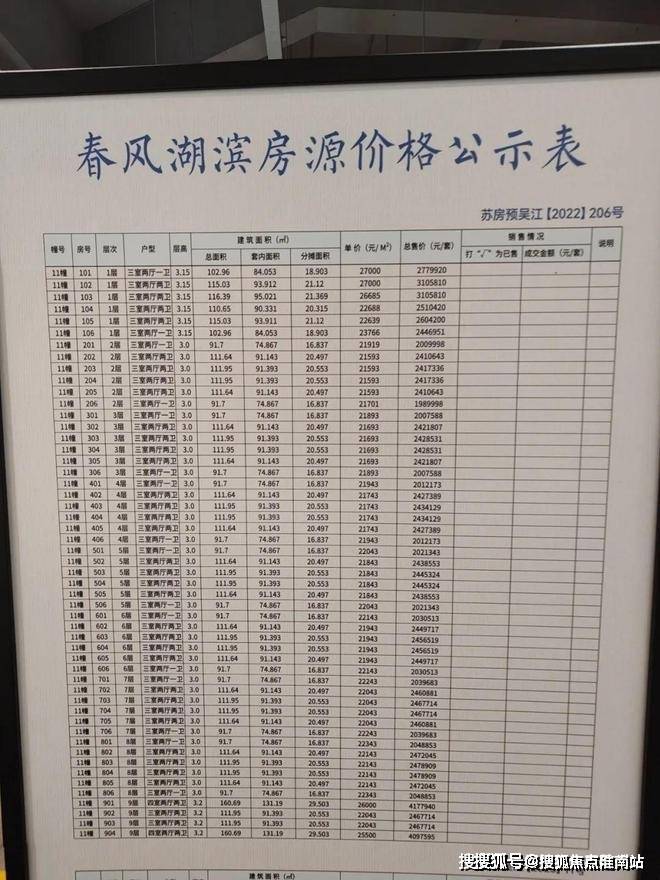 春风湖滨房源价格公示表
苏房预吴江【2022】206号
幢号 房号 层次 户型 层高 建筑面积（㎡） 单价（元/M²） 总售价（元/套） 销售情况 说明
总面积 套内面积 分摊面积 打“√”为已售 成交金额（元/套）
11幢 101 1层 三室两厅一卫 3.15 102.96 84.053 18.903 27000 2779920
11幢 102 1层 三室两厅两卫 3.15 115.03 93.912 21.12 27000 3105810
11幢 103 1层 三室两厅两卫 3.15 116.39 95.021 21.369 26685 3105810
11幢 104 1层 三室两厅两卫 3.15 110.65 90.331 20.315 22688 2510420
11幢 105 1层 三室两厅两卫 3.15 115.03 93.911 21.12 22639 2604200
11幢 106 1层 三室两厅一卫 3.15 102.96 84.053 18.903 23766 2446951
11幢 201 2层 三室两厅一卫 3.0 91.7 74.867 16.837 21919 2009998
11幢 202 2层 三室两厅两卫 3.0 111.64 91.143 20.497 21593 2410643
11幢 203 2层 三室两厅两卫 3.0 111.95 91.393 20.553 21593 2417336
11幢 204 2层 三室两厅两卫 3.0 111.95 91.393 20.553 21593 2417336
11幢 205 2层 三室两厅两卫 3.0 111.64 91.143 20.497 21593 2410643
11幢 206 2层 三室两厅一卫 3.0 91.7 74.867 16.837 21701 1989998
11幢 301 3层 三室两厅一卫 3.0 91.7 74.867 16.837 21893 2007588
11幢 302 3层 三室两厅两卫 3.0 111.64 91.143 20.497 21693 2421807
11幢 303 3层 三室两厅两卫 3.0 111.95 91.393 20.553 21693 2428531
11幢 304 3层 三室两厅两卫 3.0 111.95 91.393 20.553 21693 2428531
11幢 305 3层 三室两厅两卫 3.0 111.64 91.143 20.497 21693 2421807
11幢 306 3层 三室两厅一卫 3.0 91.7 74.867 16.837 21893 2007588
11幢 401 4层 三室两厅一卫 3.0 91.7 74.867 16.837 21943 2012173
11幢 402 4层 三室两厅两卫 3.0 111.64 91.143 20.497 21743 2427389
11幢 403 4层 三室两厅两卫 3.0 111.95 91.393 20.553 21743 2434129
11幢 404 4层 三室两厅两卫 3.0 111.95 91.393 20.553 21743 2434129
11幢 405 4层 三室两厅两卫 3.0 111.64 91.143 20.497 21743 2427389
11幢 406 4层 三室两厅一卫 3.0 91.7 74.867 16.837 21943 2012173
11幢 501 5层 三室两厅一卫 3.0 91.7 74.867 16.837 22043 2021343
11幢 502 5层 三室两厅两卫 3.0 111.64 91.143 20.497 21843 2438553
11幢 503 5层 三室两厅两卫 3.0 111.95 91.393 20.553 21843 2445324
11幢 504 5层 三室两厅两卫 3.0 111.95 91.393 20.553 21843 2445324
11幢 505 5层 三室两厅两卫 3.0 111.64 91.143 20.497 21843 2438553
11幢 506 5层 三室两厅一卫 3.0 91.7 74.867 16.837 22043 2021343
11幢 601 6层 三室两厅一卫 3.0 91.7 74.867 16.837 22143 2030513
11幢 602 6层 三室两厅两卫 3.0 111.64 91.143 20.497 21943 2449717
11幢 603 6层 三室两厅两卫 3.0 111.95 91.393 20.553 21943 2456519
11幢 604 6层 三室两厅两卫 3.0 111.95 91.393 20.553 21943 2456519
11幢 605 6层 三室两厅两卫 3.0 111.64 91.143 20.497 21943 2449717
11幢 606 6层 三室两厅一卫 3.0 91.7 74.867 16.837 22143 2030513
11幢 701 7层 三室两厅一卫 3.0 91.7 74.867 16.837 22243 2039683
11幢 702 7层 三室两厅两卫 3.0 111.64 91.143 20.497 22043 2460881
11幢 703 7层 三室两厅两卫 3.0 111.95 91.393 20.553 22043 2467714
11幢 704 7层 三室两厅两卫 3.0 111.95 91.393 20.553 22043 2467714
11幢 705 7层 三室两厅两卫 3.0 111.64 91.143 20.497 22043 2460881
11幢 706 7层 三室两厅一卫 3.0 91.7 74.867 16.837 22243 2039683
11幢 801 8层 三室两厅一卫 3.0 91.7 74.867 16.837 22343 2048853
11幢 802 8层 三室两厅两卫 3.0 111.64 91.143 20.497 22143 2472045
11幢 803 8层 三室两厅两卫 3.0 111.95 91.393 20.553 22143 2478909
11幢 804 8层 三室两厅两卫 3.0 111.95 91.393 20.553 22143 2478909
11幢 805 8层 三室两厅两卫 3.0 111.64 91.143 20.497 22143 2472045
11幢 806 8层 三室两厅一卫 3.0 91.7 74.867 16.837 22343 2048853
11幢 901 9层 四室两厅两卫 3.2 160.69 131.19 29.503 26000 4177940
11幢 902 9层 三室两厅两卫 3.2 111.95 91.393 20.553 22043 2467714
11幢 903 9层 三室两厅两卫 3.2 111.95 91.393 20.553 22043 2467714
11幢 904 9层 四室两厅两卫 3.2 160.69 131.19 29.503 25500 4097595
建筑面积（㎡）
搜搜狐号@搜狐焦点睢南站